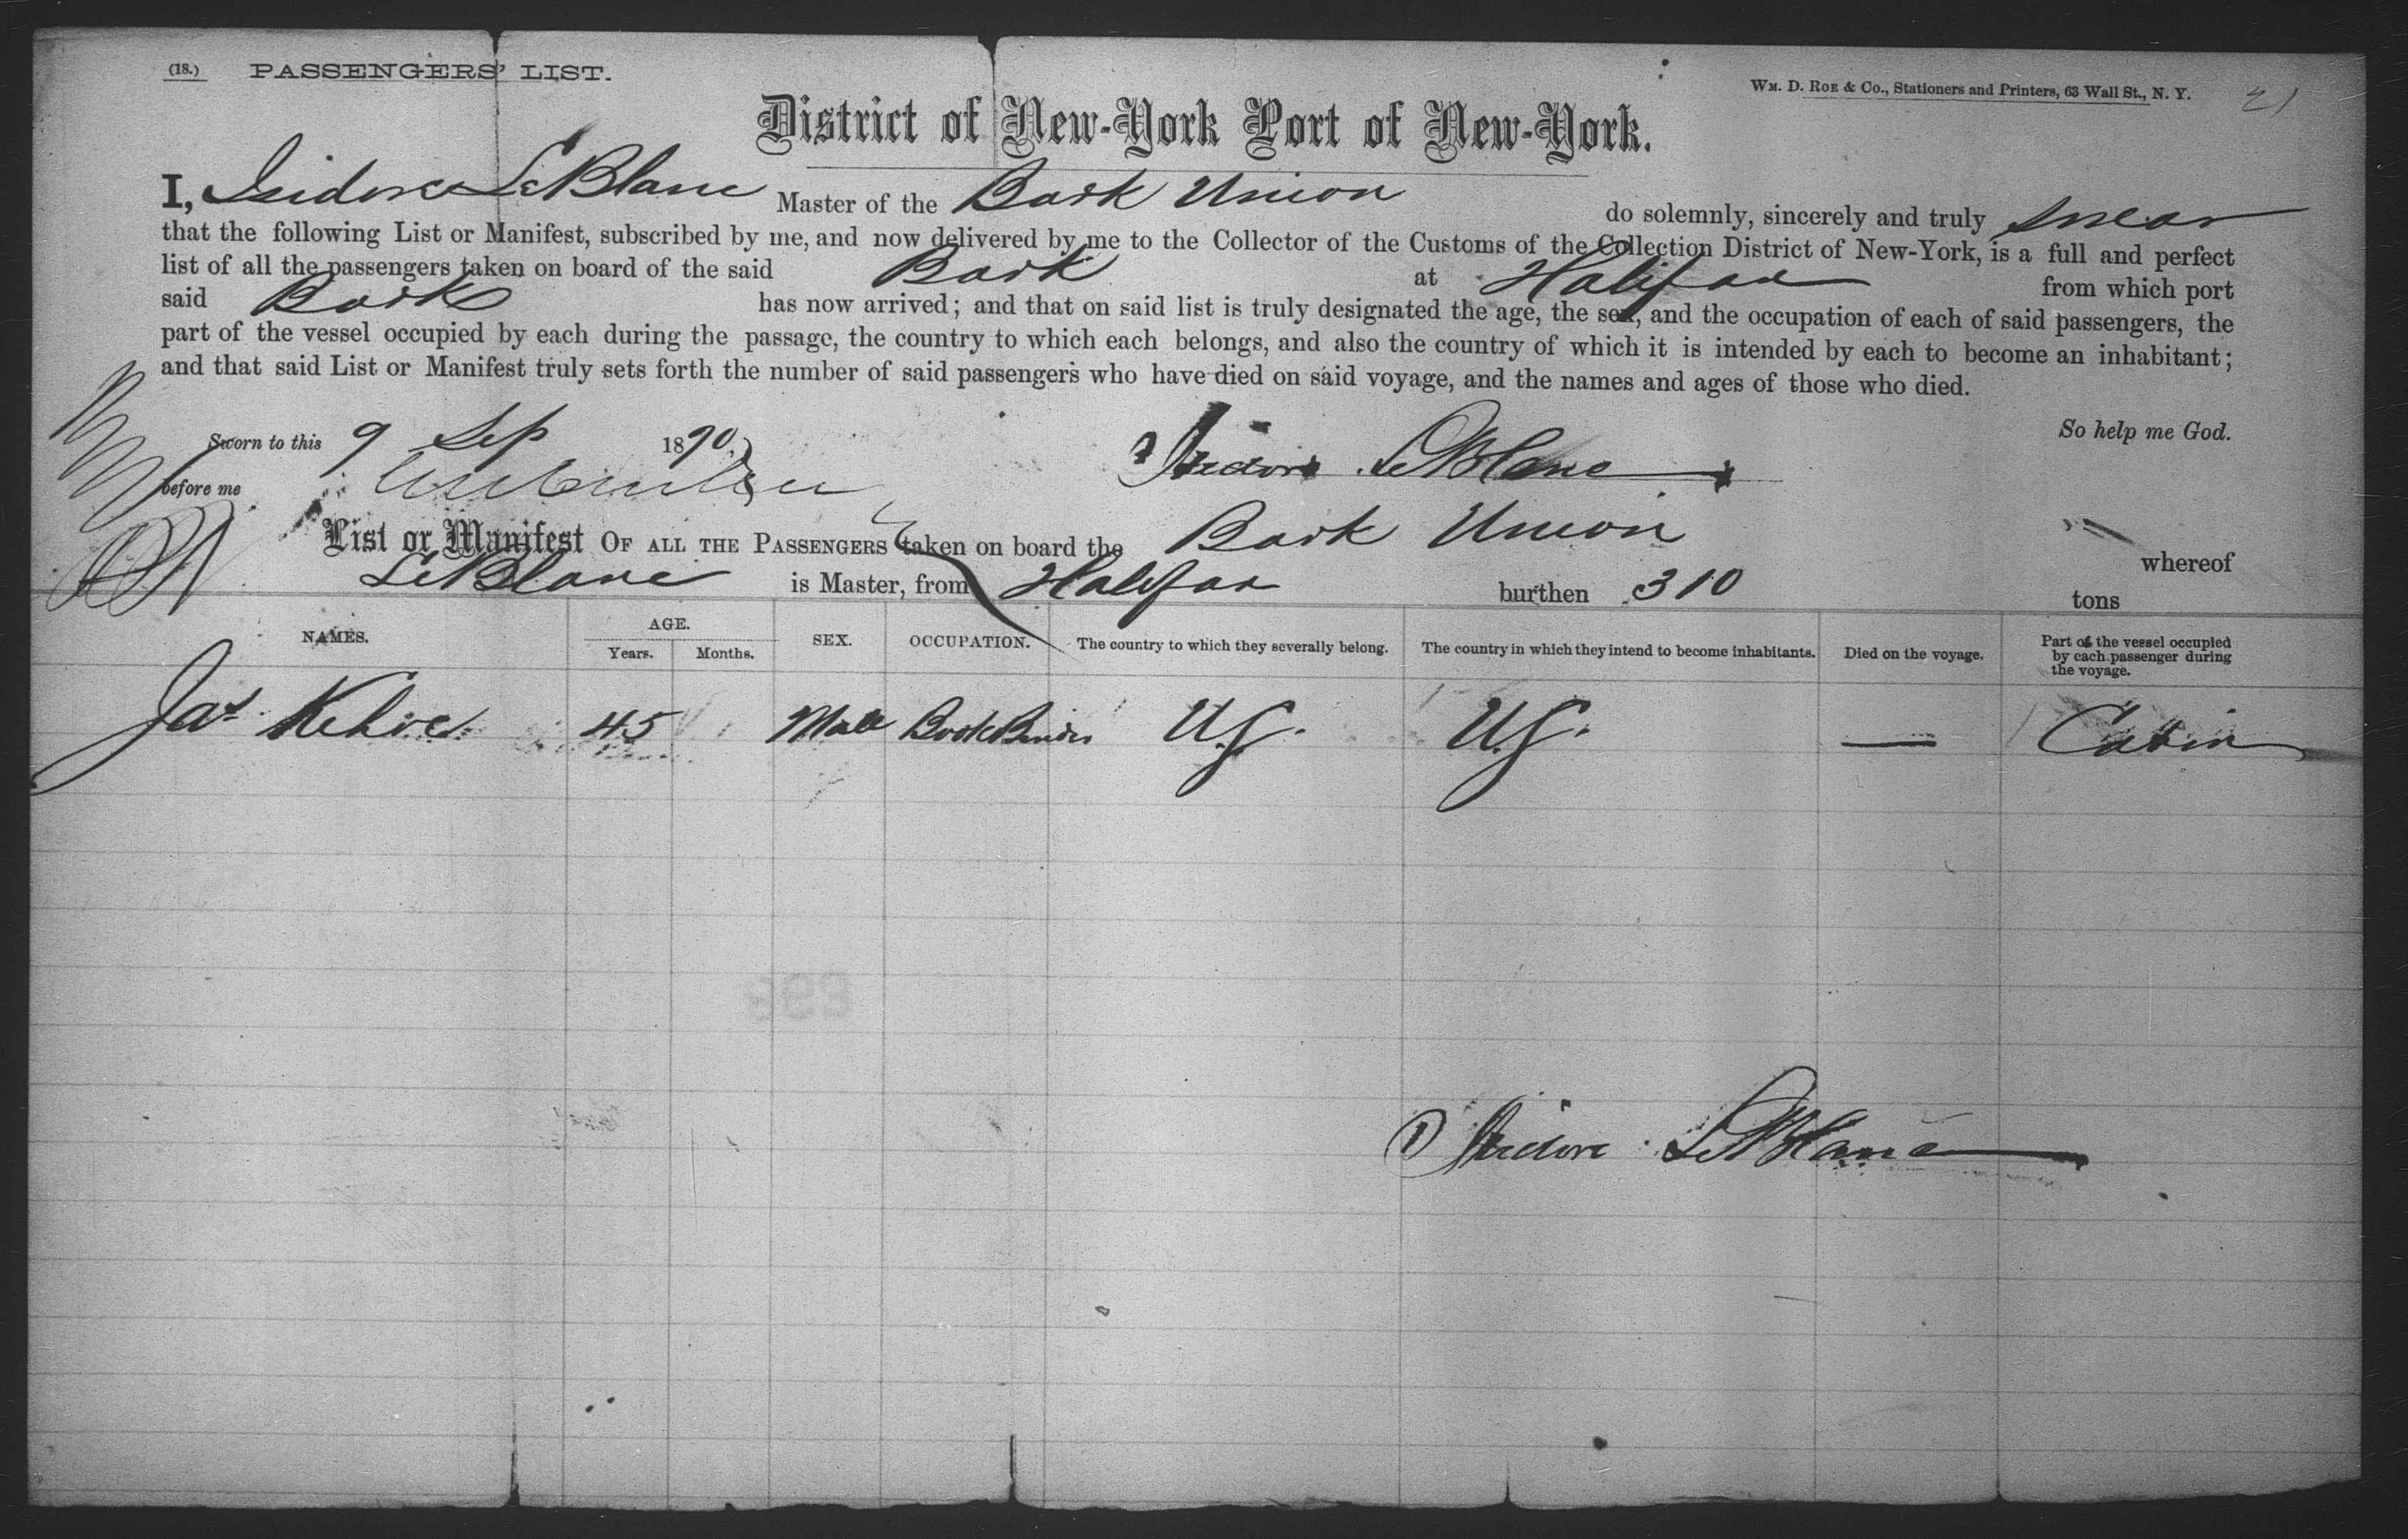 (18.) PASSENGERS' LIST.
WM. D. ROE & CO., Stationers and Printers, 63 Wall St., N. Y. 21
District of New-York Port of New-York.
I, Isidore LeBlanc Master of the Bark Union do solemnly, sincerely and truly swear
that the following List or Manifest, subscribed by me, and now delivered by me to the Collector of the Customs of the Collection District of New-York, is a full and perfect
list of all the passengers taken on board of the said Bark at Halifax from which port
said Bark has now arrived; and that on said list is truly designated the age, the sex, and the occupation of each of said passengers, the
part of the vessel occupied by each during the passage, the country to which each belongs, and also the country of which it is intended by each to become an inhabitant;
and that said List or Manifest truly sets forth the number of said passengers who have died on said voyage, and the names and ages of those who died.
So help me God.
Sworn to this 9 Sep 1890
Isidore LeBlanc
before me
List or Manifest OF ALL THE PASSENGERS taken on board the Bark Union whereof
LeBlanc is Master, from Halifax burthen 310 tons
NAMES. AGE. Years. Months. SEX. OCCUPATION. The country to which they severally belong. The country in which they intend to become inhabitants. Died on the voyage. Part of the vessel occupied by each passenger during the voyage.
Jas Kehoe 45 Male BookBinder U.S. U.S. — Cabin
Isidore LeBlanc